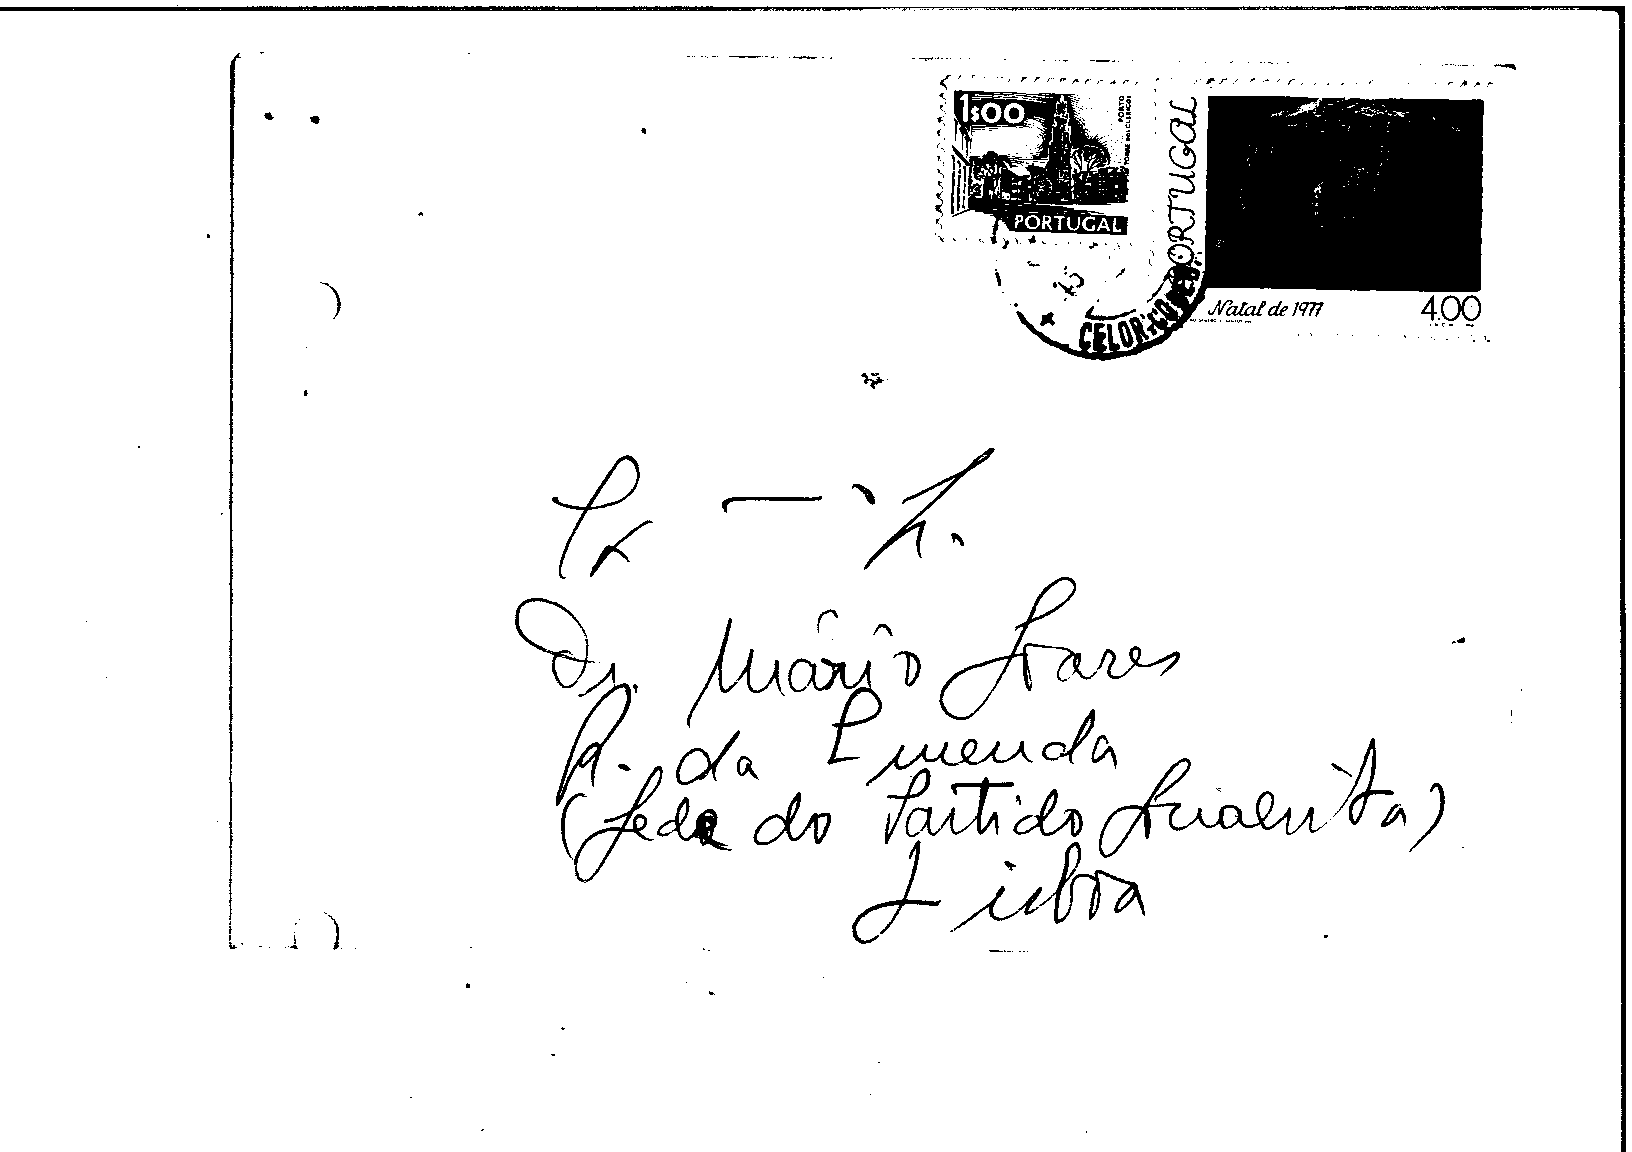 1$00
PORTO
TORRE DOS CLÉRIGOS
PORTUGAL
PORTUGAL
Natal de 1977
4.00
CELOR
Dr. Mário Soares
R. da Emenda
(Sede do Partido Socialista)
Lisboa